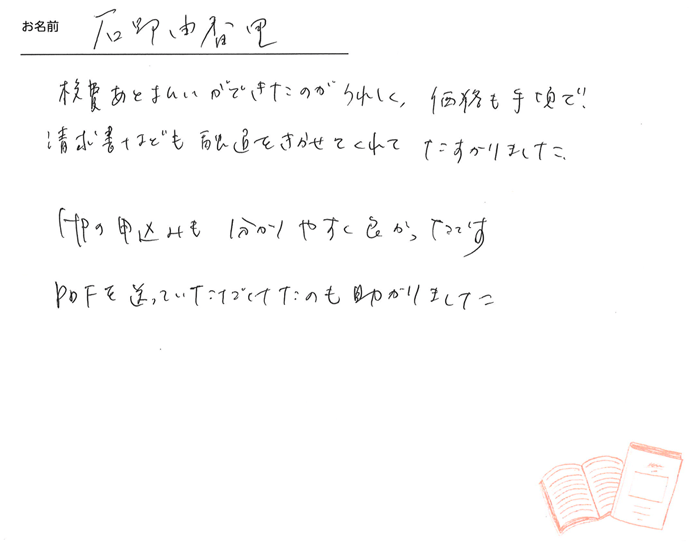 お名前 石野由香里
校費あとばらいができたのがうれしく、価格も手頃で!
請求書なども融通をきかせてくれて たすかりました。
HPの申込みも 分かりやすく良かったです
PDFを送っていただけたのも助かりました